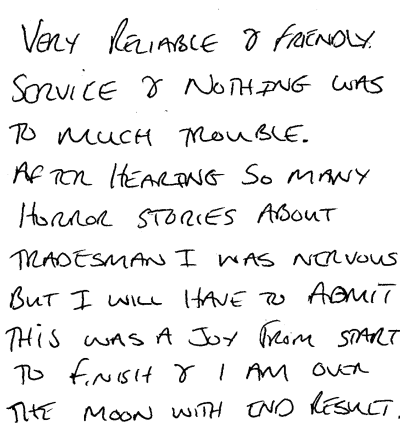 VERY RELIABLE & FRIENDLY.
SERVICE & NOTHING WAS
TO MUCH TROUBLE.
AFTER HEARING SO MANY
HORROR STORIES ABOUT
TRADESMAN I WAS NERVOUS
BUT I WILL HAVE TO ADMIT
THIS WAS A JOY FROM START
TO FINISH & I AM OVER
THE MOON WITH END RESULT.